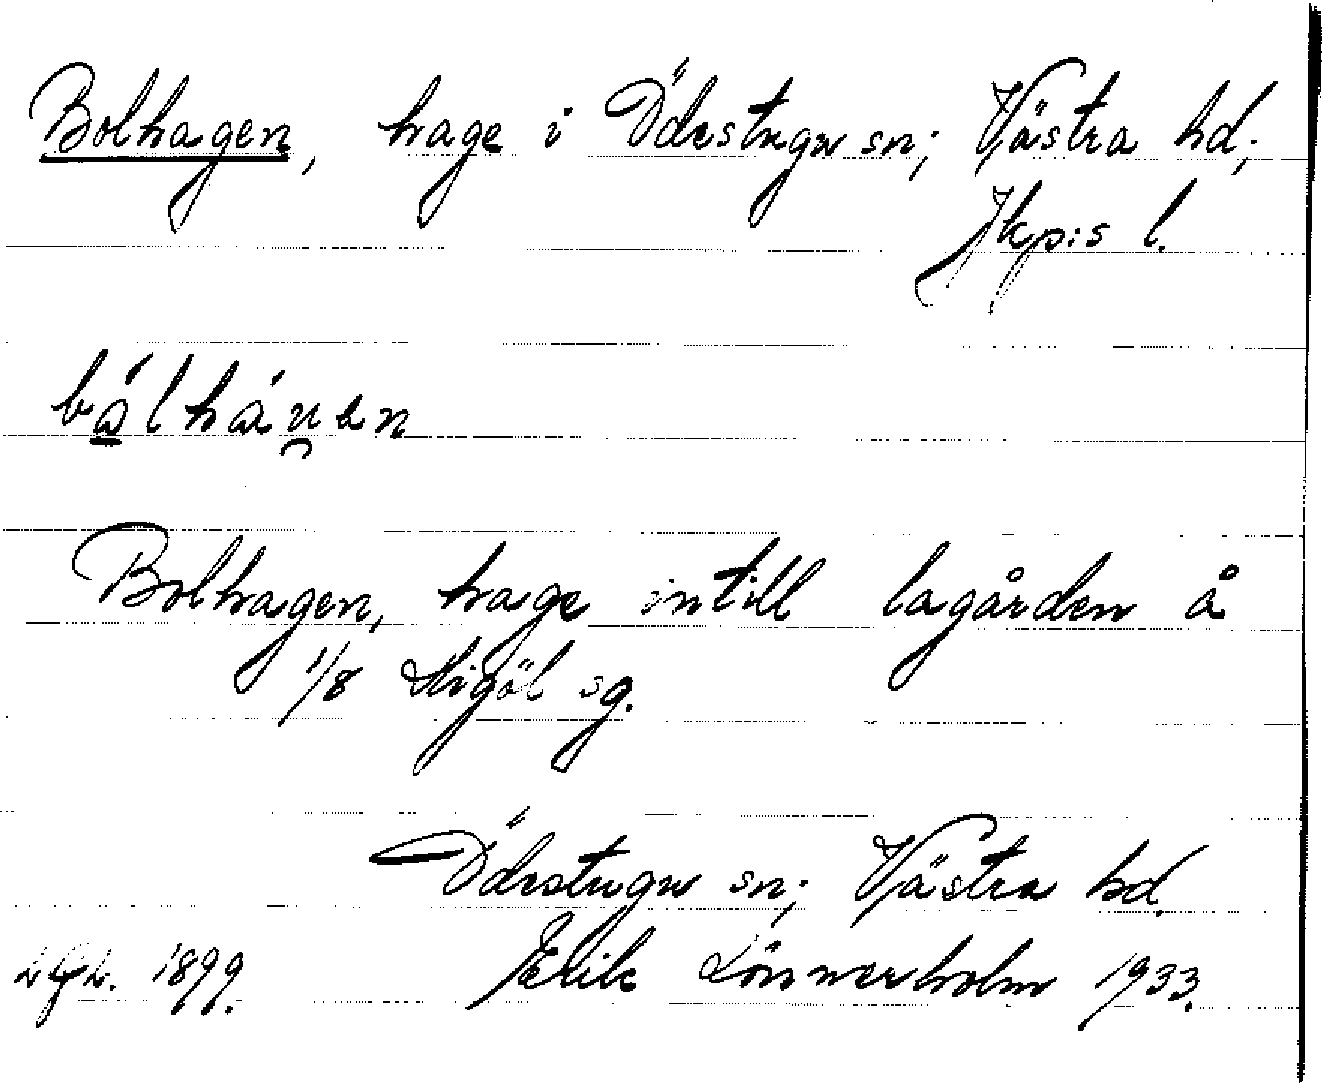 Bolhagen, hage i Ödestugu sn; Västra hd;
Jkp:s l.
bålhàṇen
Bolhagen, hage intill lagården å
1/8 Stigöl sg.
Ödestugu sn; Västra hd.
1899. Erik Lönnerholm 1933.